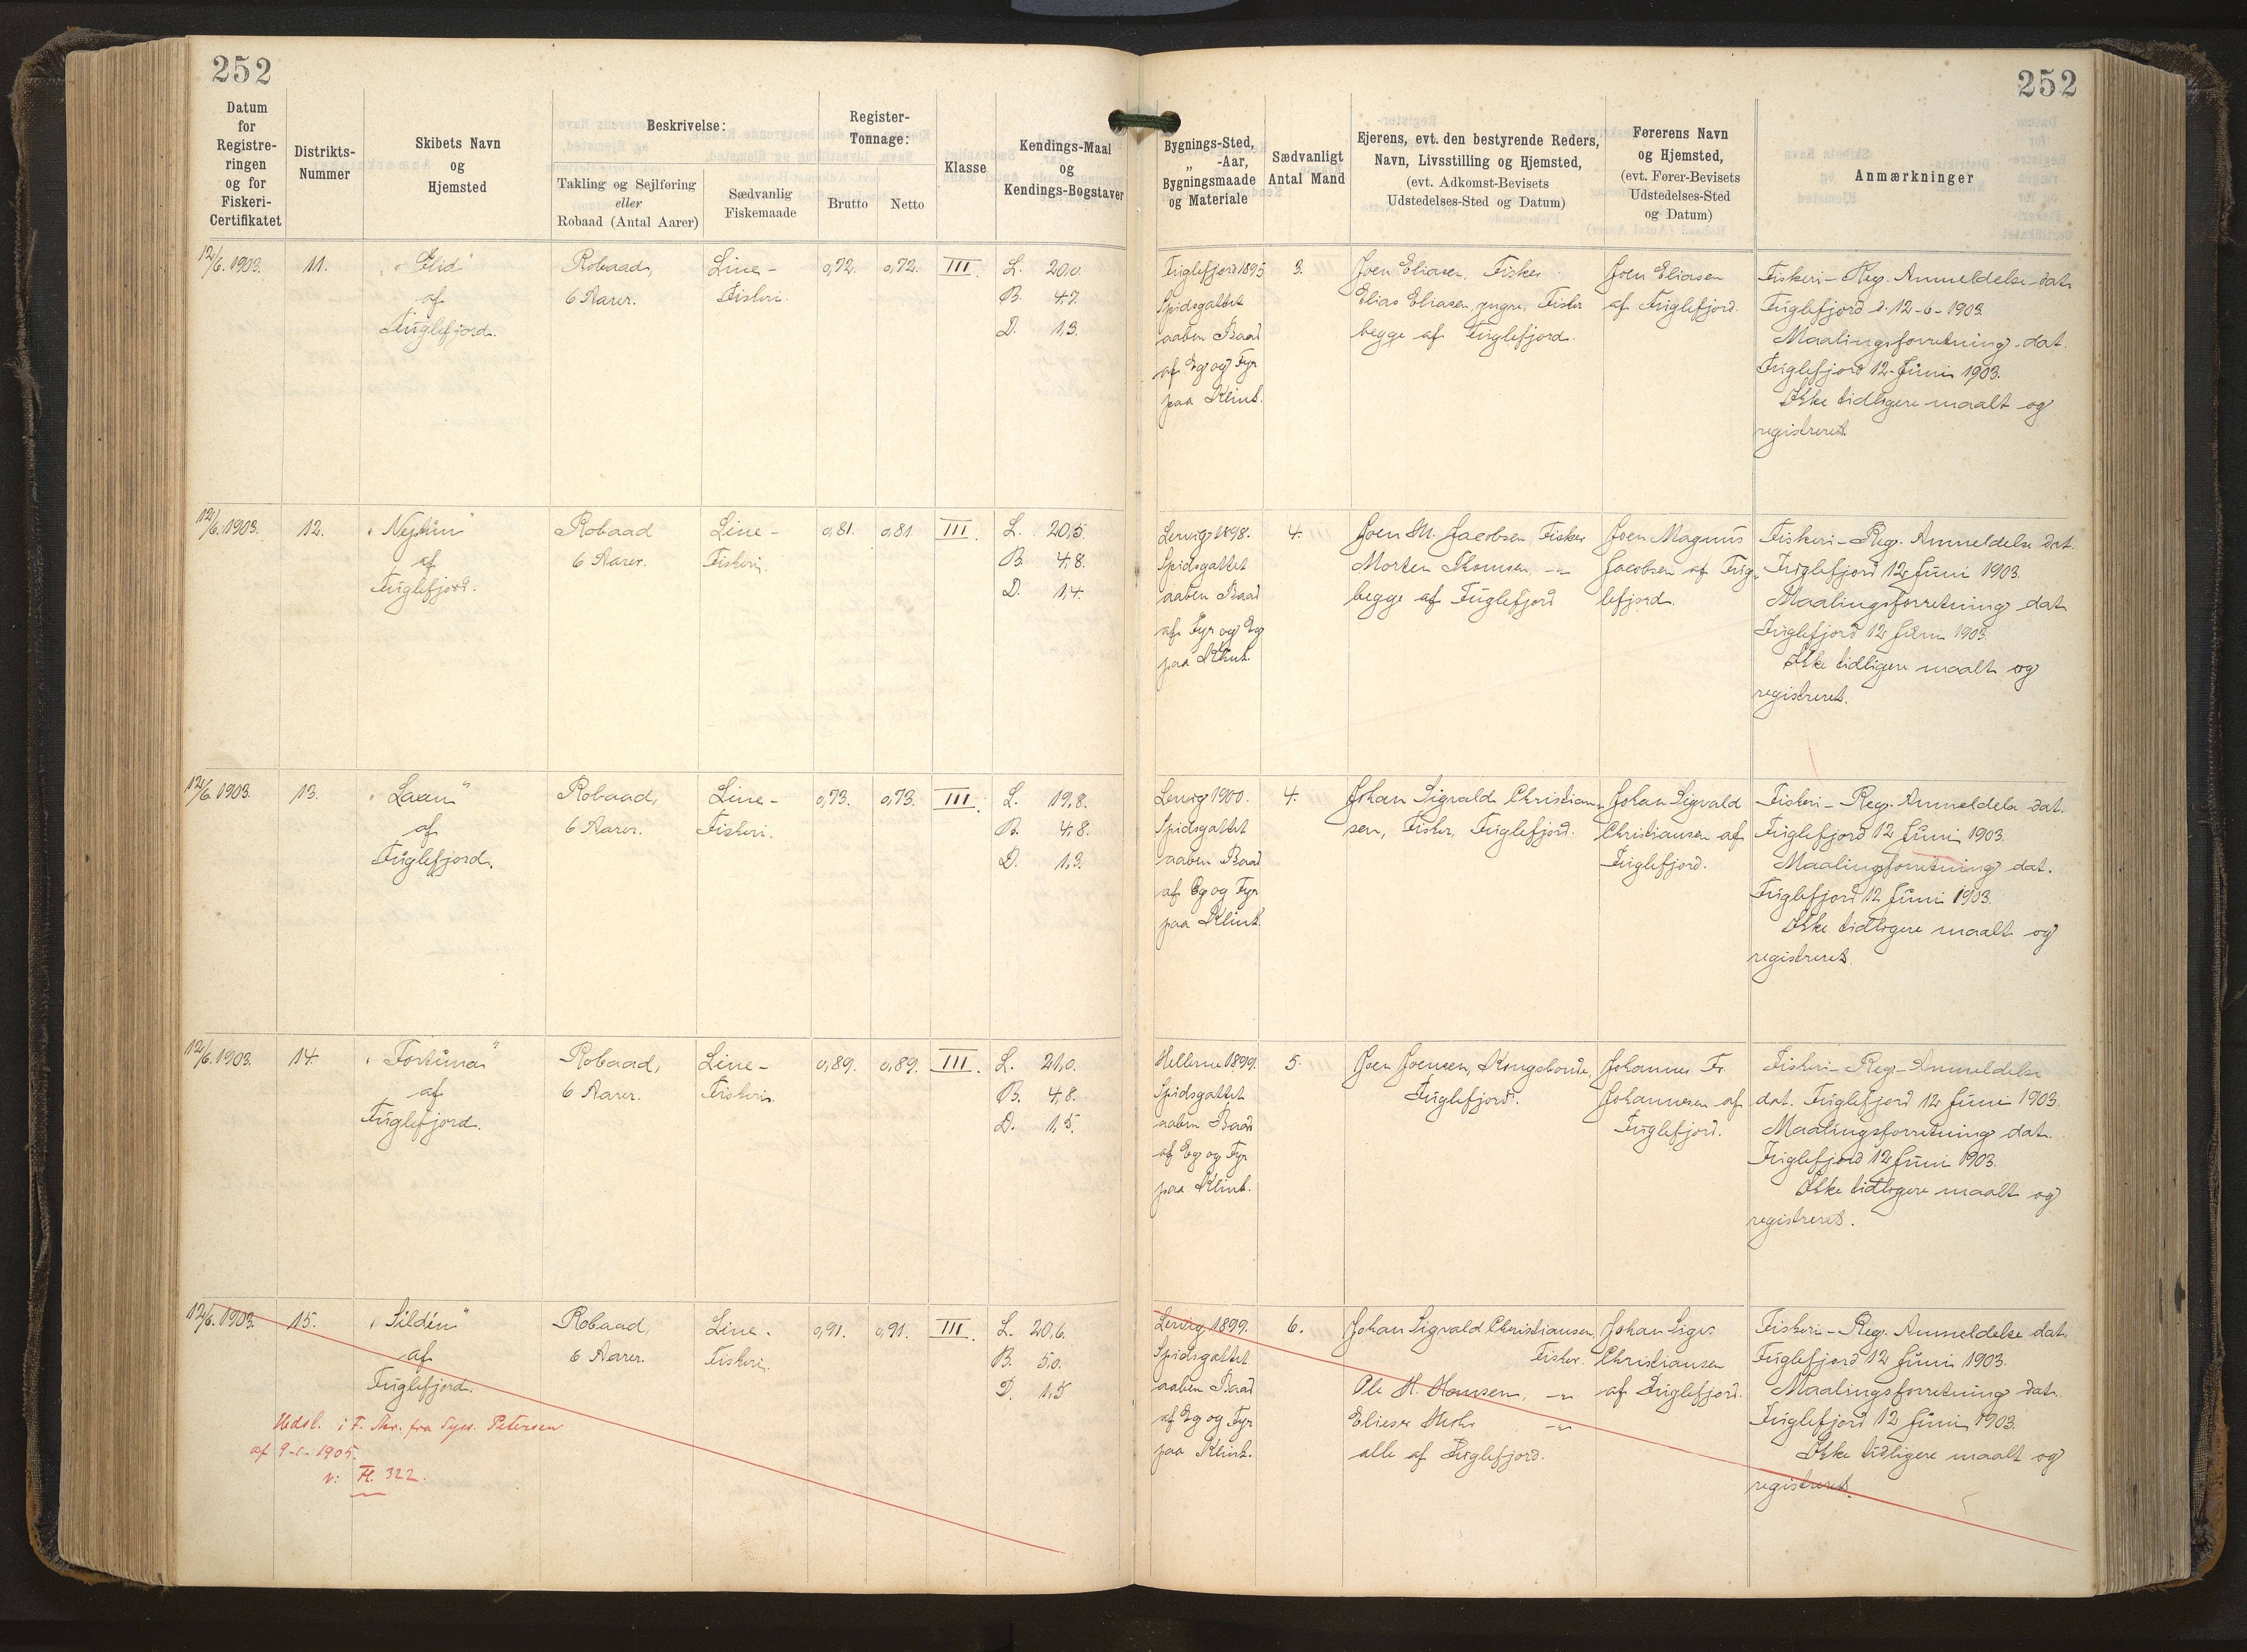 252
252
Datum
for
Registre-
ringen
og for
Fiskeri-
Certifikatet
Distrikts-
Nummer
Skibets Navn
og
Hjemsted
Beskrivelse:
Takling og Sejlføring
eller
Robaad (Antal Aarer)
Sædvanlig
Fiskemaade
Register-
Tonnage:
Brutto
Netto
Klasse
Kendings-Maal
og
Kendings-Bogstaver
Bygnings-Sted,
„ -Aar,
Bygningsmaade
og Materiale
Sædvanligt
Antal Mand
Ejerens, evt. den bestyrende Reders,
Navn, Livsstilling og Hjemsted,
(evt. Adkomst-Bevisets
Udstedelses-Sted og Datum)
Førerens Navn
og Hjemsted,
(evt. Fører-Bevisets
Udstedelses-Sted
og Datum)
Anmærkninger
12/6. 1903.
11.
af
Fuglefjord.
Robaad,
6 Aarer.
Line-
Fiskeri.
0,72.
0,72.
III.
L. 20,0.
B. 4,7.
D. 1,3.
Fuglefjord 1895
Spidsgattet
aaben Baad
af Eg og Fyr
paa Klink.
3.
Joen Eliasen, Fisker
Elias Eliasen, yngre, Fisker
begge af Fuglefjord.
Joen Eliasen
af Fuglefjord.
Fiskeri-Reg. Anmeldelse dat.
Fuglefjord d. 12-6-1903.
Maalingsforretning dat.
Fuglefjord 12 Juni 1903.
Ikke tidligere maalt og
registreret.
12/6. 1903.
12.
„Neptun"
af
Fuglefjord.
Robaad
6 Aarer.
Line-
Fiskeri.
0,81.
0,81
III.
L. 20,5.
B. 4,8.
D. 1,4.
Lervig 1898.
Spidsgattet
aaben Baad
af Fyr og Eg
paa Klink.
4.
Joen M. Jacobsen, Fisker
Morten Thomsen, -"-
begge af Fuglefjord
Joen Magnus
Jacobsen af Fug-
lefjord.
Fiskeri-Reg. Anmeldelse dat.
Fuglefjord 12 Juni 1903.
Maalingsforretning dat.
Fuglefjord 12 Juni 1903.
Ikke tidligere maalt og
registreret.
12/6. 1903.
13.
„Laxen"
af
Fuglefjord.
Robaad,
6 Aarer.
Line-
Fiskeri.
0,73.
0,73.
III.
L. 19,8.
B. 4,8.
D. 1,3.
Lervig 1900.
Spidsgattet
aaben Baad
af Eg og Fyr
paa Klink.
4.
Johan Sigvald Christian-
sen, Fisker, Fuglefjord.
Johan Sigvald
Christiansen af
Fuglefjord.
Fiskeri-Reg. Anmeldelse dat.
Fuglefjord 12 Juni 1903.
Maalingsforretning dat.
Fuglefjord 12 Juni 1903.
Ikke tidligere maalt og
registreret.
12/6. 1903.
14.
„Fortuna"
af
Fuglefjord.
Robaad,
6 Aarer.
Line-
Fiskeri.
0,89.
0,89.
III.
L. 21,0.
B. 4,8.
D. 1,5.
Hellerne 1899.
Spidsgattet
aaben Baad
af Eg og Fyr
paa Klink.
5.
Joen Joensen, Kongsbonde,
Fuglefjord.
Johannes Fr.
Johannesen af
Fuglefjord.
Fiskeri-Reg-Anmeldelse
dat. Fuglefjord 12 Juni 1903.
Maalingsforretning dat.
Fuglefjord 12 Juni 1903.
Ikke tidligere maalt og
registreret.
12/6. 1903.
15.
„Silden"
af
Fuglefjord.
Robaad,
6 Aarer.
Line-
Fiskeri.
0,91.
0,91.
III.
L. 20,6.
B. 5,0.
D. 1,5
Udsl. i F. Skr. fra Sysl. Petersen
af 9-1-1905.
H. 322.
Lervig 1899.
Spidsgattet
aaben Baad
af Eg og Fyr
paa Klink.
6.
Johan Sigvald Christiansen,
Fisker.
Ole H. Hansen, -"-
Elieser -"-
alle af Fuglefjord.
Johan Sigv.
Christiansen
af Fuglefjord.
Fiskeri-Reg. Anmeldelse dat.
Fuglefjord 12 Juni 1903.
Maalingsforretning dat.
Fuglefjord 12 Juni 1903.
Ikke tidligere maalt og
registreret.